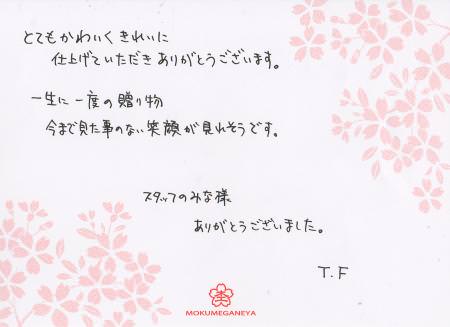 とてもかわいくきれいに
仕上げていただきありがとうございます。
一生に一度の贈り物
今まで見た事のない笑顔が見れそうです。
スタッフのみな様
ありがとうございました。
T.F
MOKUMEGANEYA